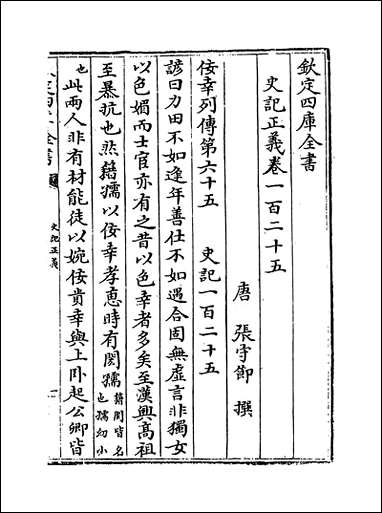 欽定四庫全書
史記正義卷一百二十五
唐 張守節 撰
佞幸列傳第六十五 史記一百二十五
諺曰力田不如逢年善仕不如遇合固無虛言非獨女
以色媚而士宦亦有之昔以色幸者多矣至漢興髙祖
至暴抗也然籍孺以佞幸孝惠時有閎孺籍閎皆名也孺幼小
也此兩人非有材能徒以婉佞貴幸與上卧起公卿皆
史記正義